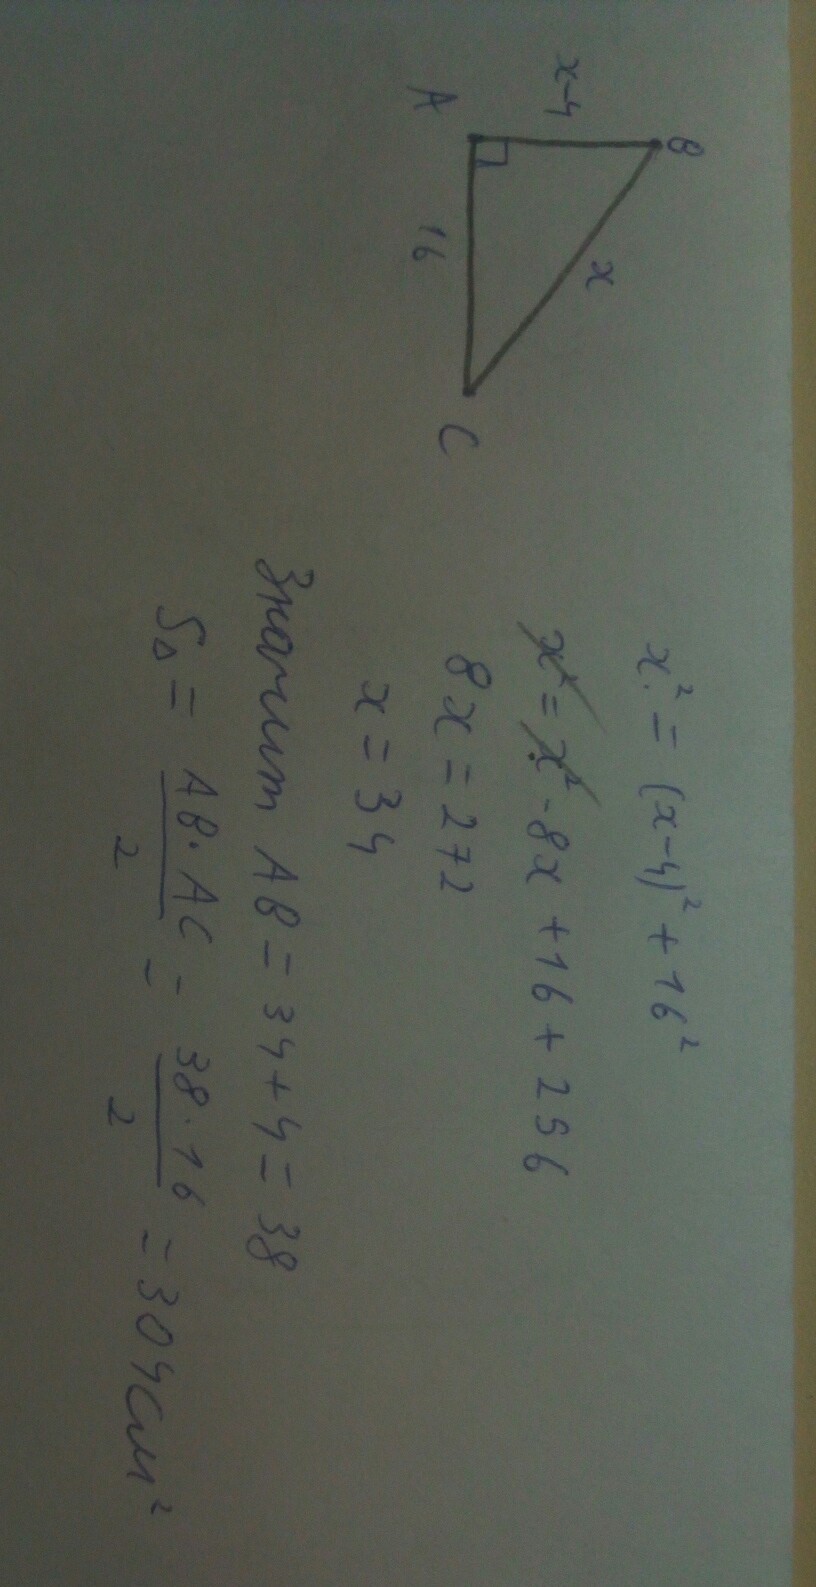 B
x-4
x
A
16
C
x² = (x-4)² + 16²
x² = x² - 8x + 16 + 256
8x = 272
x = 34
Значит AB = 34 + 4 = 38
S△ = AB · AC / 2 = 38 · 16 / 2 = 304 см²